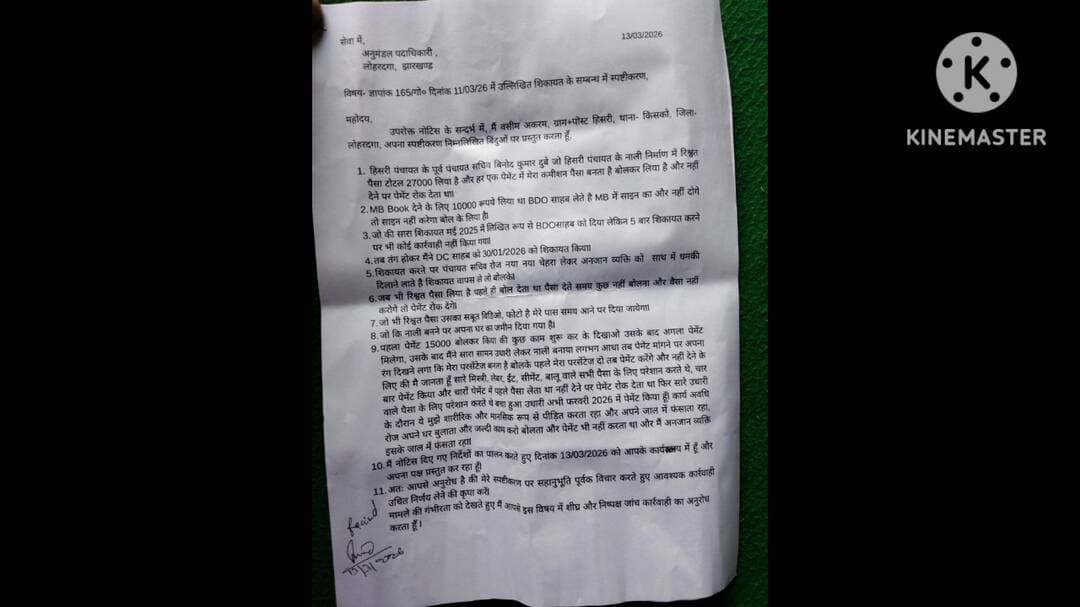 सेवा में,
13/03/2026
अनुमंडल पदाधिकारी ,
लोहरदगा, झारखण्ड
विषय- ज्ञापांक 165/गो० दिनांक 11/03/26 में उल्लिखित शिकायत के सम्बन्ध में स्पष्टीकरण,
महोदय,
उपरोक्त नोटिस के सन्दर्भ में, मैं वसीम अकरम, ग्राम+पोस्ट हिसरी, थाना- किसको, जिला-
लोहरदगा, अपना स्पष्टीकरण निम्नलिखित बिंदुओं पर प्रस्तुत करता हूँ,
1. हिसरी पंचायत के पूर्व पंचायत सचिव बिनोद कुमार दुबे जो हिसरी पंचायत के नाली निर्माण में रिश्वत
पैसा टोटल 27000 लिया है और हर एक पेमेंट में मेरा कमीशन पैसा बनता है बोलकर लिया है और नहीं
देने पर पेमेंट रोक देता था।
2. MB Book देने के लिए 10000 रूपये लिया था BDO साहब लेते है MB में साइन का और नहीं दोगे
तो साइन नहीं करेगा बोल के लिया है।
3. जो की सारा शिकायत मई 2025 में लिखित रूप से BDOसाहब को दिया लेकिन 5 बार शिकायत करने
पर भी कोई कार्रवाही नहीं किया गया।
4. तब तंग होकर मैंने DC साहब को 30/01/2026 को शिकायत किया।
5. शिकायत करने पर पंचायत सचिव रोज नया नया चेहरा लेकर अनजान व्यक्ति को साथ में धमकी
दिलाने लाते है शिकायत वापस ले लो बोलके।
6. जब भी रिश्वत पैसा लिया है पहले ही बोल देता था पैसा देते समय कुछ नहीं बोलना और वैसा नहीं
करोगे तो पेमेंट रोक देंगे।
7. जो भी रिश्वत पैसा उसका सबूत विडिओ, फोटो है मेरे पास समय आने पर दिया जायेगा।
8. जो कि नाली बनने पर अपना घर का जमीन दिया गया है।
9. पहला पेमेंट 15000 बोलकर किया की कुछ काम शुरू कर के दिखाओ उसके बाद अगला पेमेंट
मिलेगा, उसके बाद मैंने सारा सामन उधारी लेकर नाली बनाया लगभग आधा तब पेमेंट मांगने पर अपना
रंग दिखने लगा कि मेरा परसेंटेज बनता है बोलके पहले मेरा परसेंटेज दो तब पेमेंट करेंगे और नहीं देने के
लिए की मै जानता हूँ सारे मिस्त्री, लेबर, ईंट, सीमेंट, बालू वाले सभी पैसा के लिए परेशान करते थे, चार
बार पेमेंट किया और चारों पेमेंट में पहले पैसा लेता था नहीं देने पर पेमेंट रोक देता था फिर सारे उधारी
वाले पैसा के लिए परेशान करते थे बचा हुआ उधारी अभी फरवरी 2026 में पेमेंट किया हूँ। कार्य अवधि
के दौरान ये मुझे शारीरिक और मानसिक रूप से पीड़ित करता रहा और अपने जाल में फंसाता रहा,
रोज अपने घर बुलाता और जल्दी काम करो बोलता और पेमेंट भी नहीं करता था और मैं अनजान व्यक्ति
इसके जाल में फंसता रहा।
10. मैं नोटिस दिए गए निर्देशों का पालन करते हुए दिनांक 13/03/2026 को आपके कार्यालय में हूँ और
अपना पक्ष प्रस्तुत कर रहा हूँ।
11. अतः आपसे अनुरोध है की मेरे स्पष्टीकरण पर सहानुभूति पूर्वक विचार करते हुए आवश्यक कार्रवाही
उचित निर्णय लेने की कृपा करें।
मामले की गंभीरता को देखते हुए मैं आपसे इस विषय में शीघ्र और निष्पक्ष जांच कार्रवाही का अनुरोध
करता हूँ ।
KINEMASTER